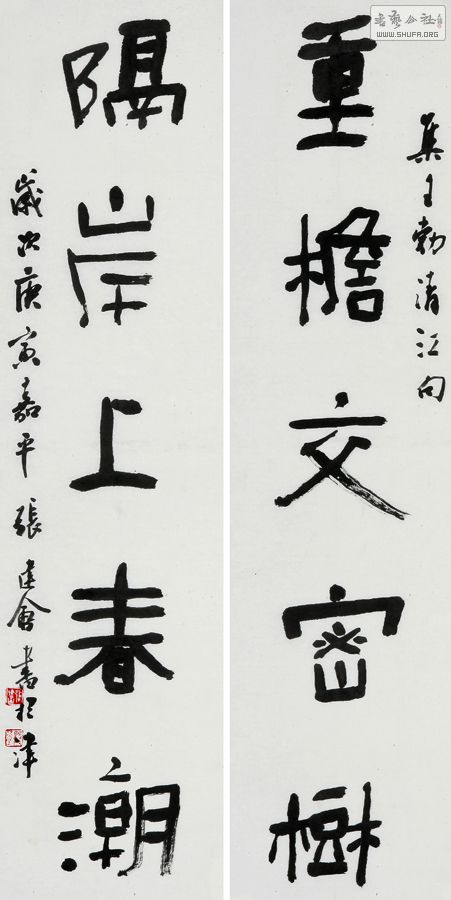 書藝公社
WWW.SHUFA.ORG
集王勃清江句
重檐交密樹
隔岸上春潮
歲次庚寅嘉平張建會書於津